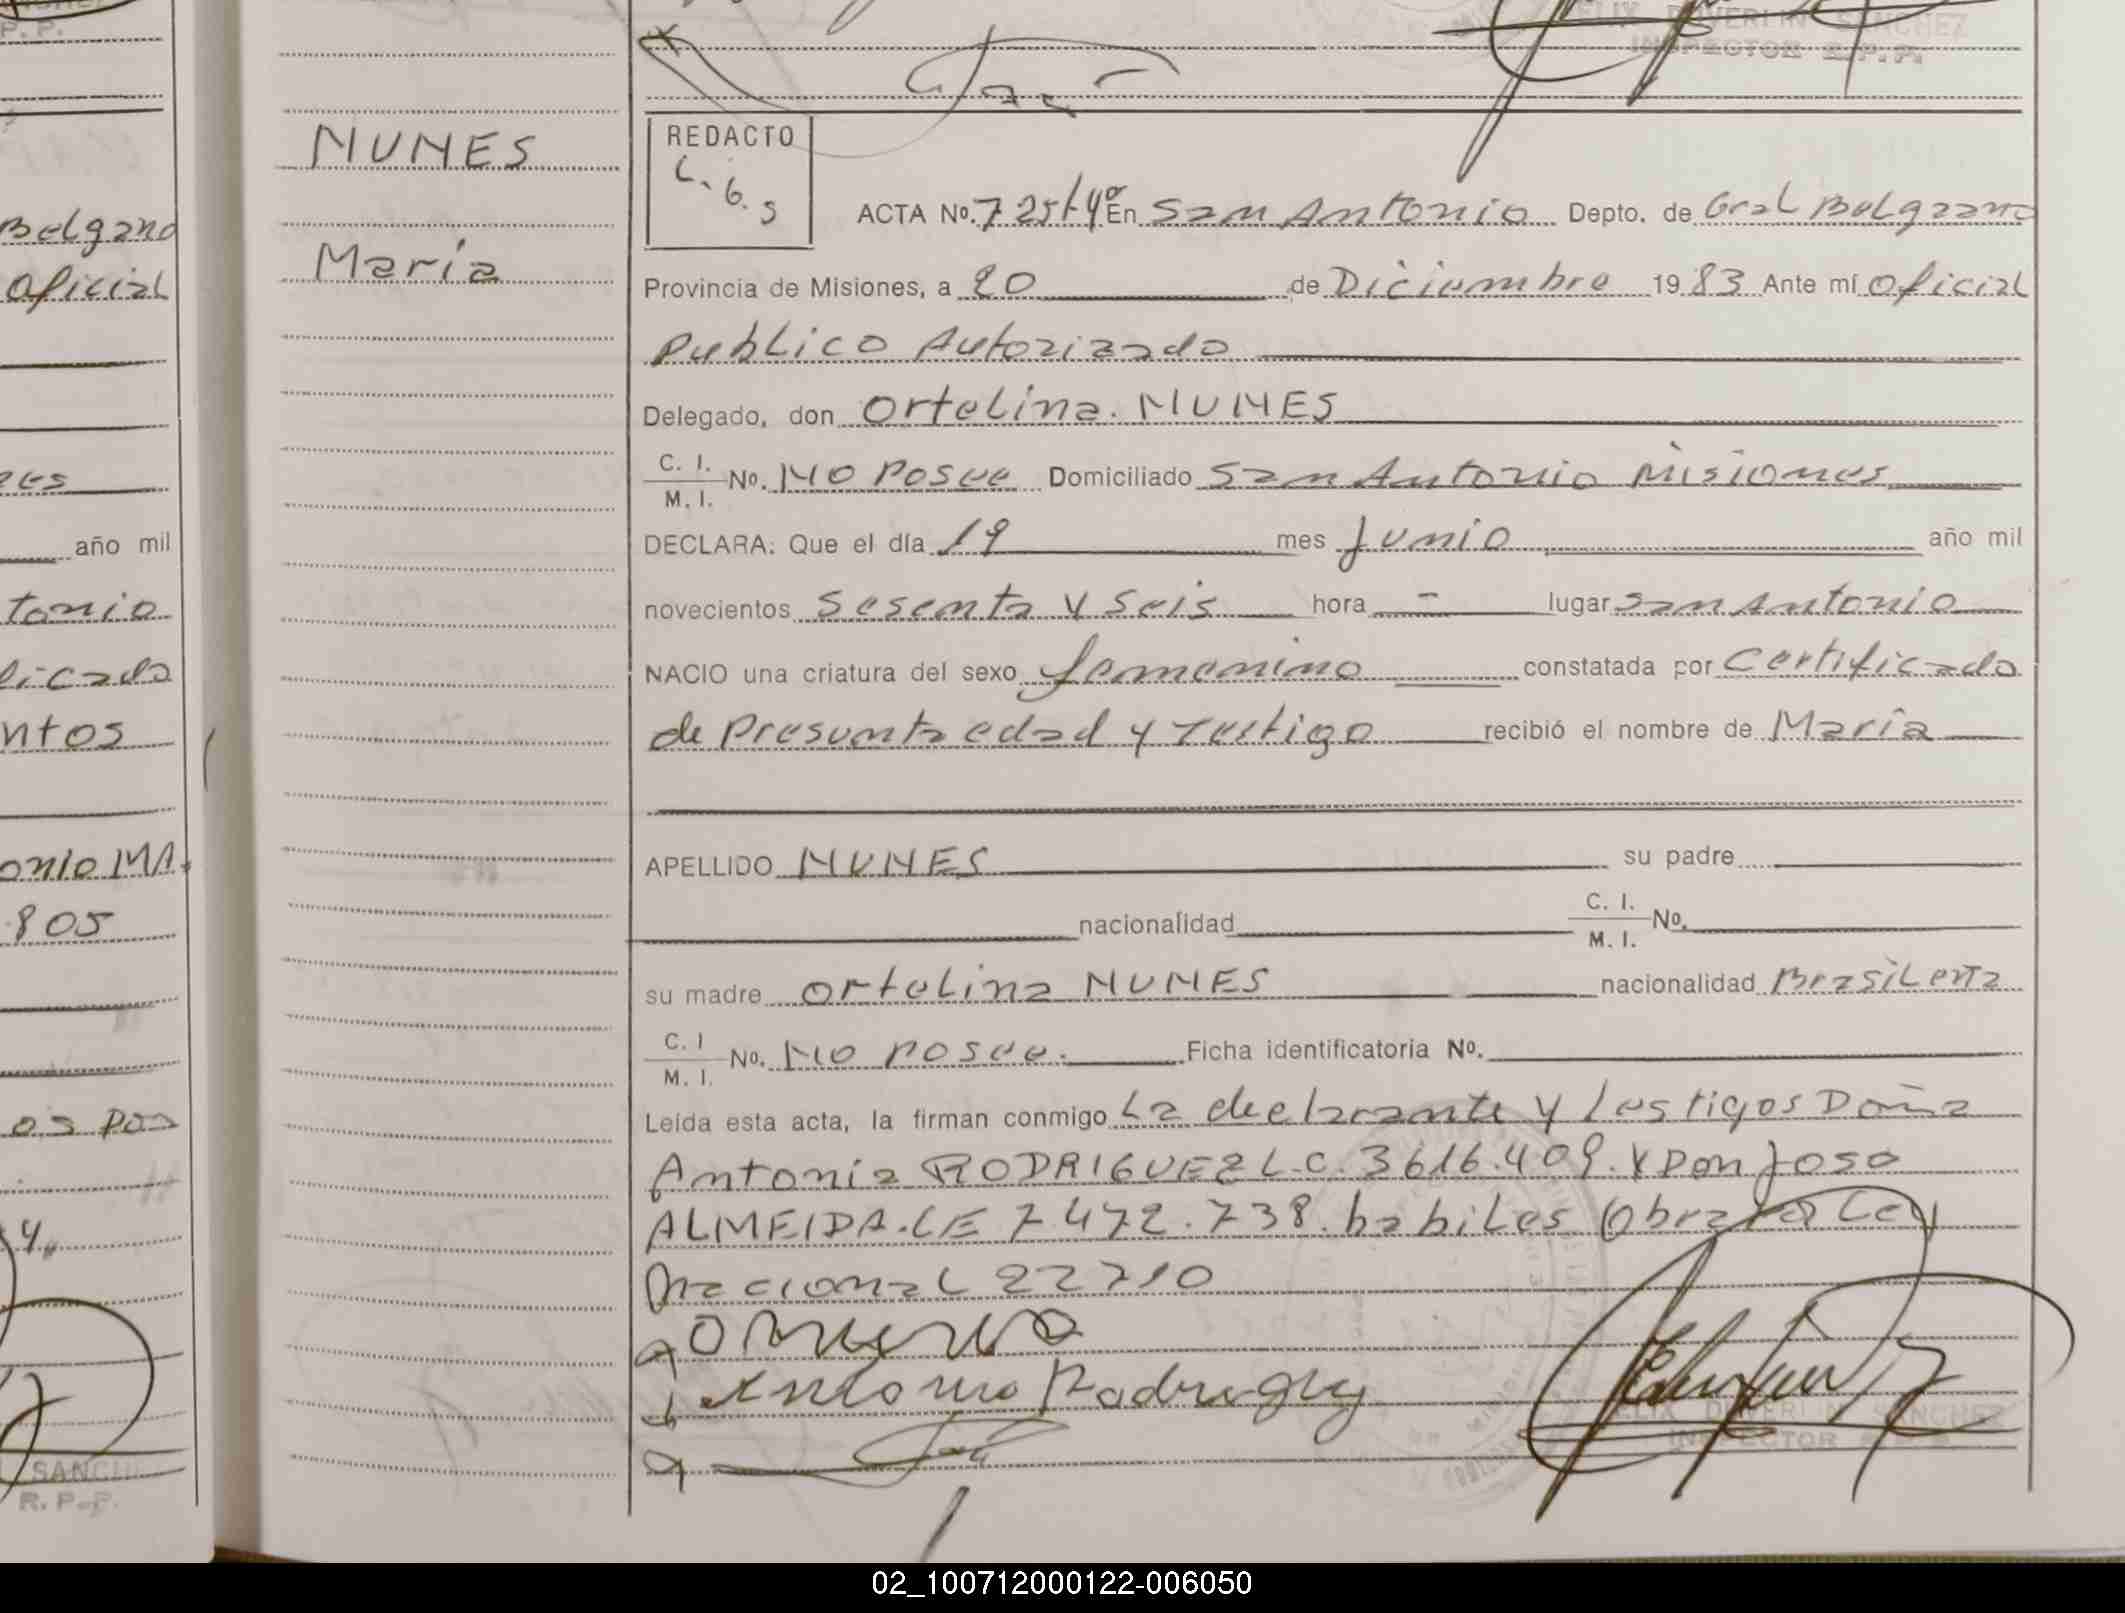 P. P.
FELIX DUVERLIN SANCHEZ
INSPECTOR R.P.P.
NUNES
María
REDACTO
ACTA Nº. 725 t 4º En San Antonio Depto. de Gral Belgrano
Provincia de Misiones, a 20 de Diciembre 1983 Ante mí Oficial
Publico Autorizado
Delegado, don Ortelina. NUNES
C. I.
M. I. Nº. NO Posee Domiciliado San Antonio Misiones
DECLARA: Que el día 19 mes Junio año mil
novecientos Sesenta y Seis hora – lugar San Antonio
NACIO una criatura del sexo femenino constatada por Certificado
de Presunta edad y testigo recibió el nombre de María
APELLIDO NUNES su padre
nacionalidad C. I.
M. I. Nº.
su madre Ortelina NUNES nacionalidad Brasileña
C. I
M. I. Nº. NO Posee. Ficha identificatoria Nº.
Leída esta acta, la firman conmigo La declarante y testigos Doña
Antonia RODRIGUEZ L.C. 3616.409. y Don Joso
ALMEIDA. LE 7.472.738. habiles (Obra la Ley
Nacional 22710
Antonia Rodriguez
FELIX DUVERLIN SANCHEZ
INSPECTOR
Belgrano
Oficial
año mil
tonio
ficado
ntos
onio MA.
805
os Pos
4
SANCH
R. P. P.
02_100712000122-006050